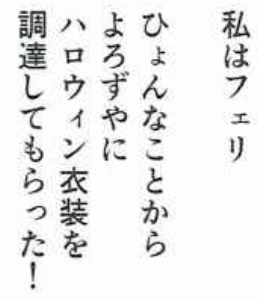 私はフェリ
ひょんなことから
よろずやに
ハロウィン衣装を
調達してもらった！